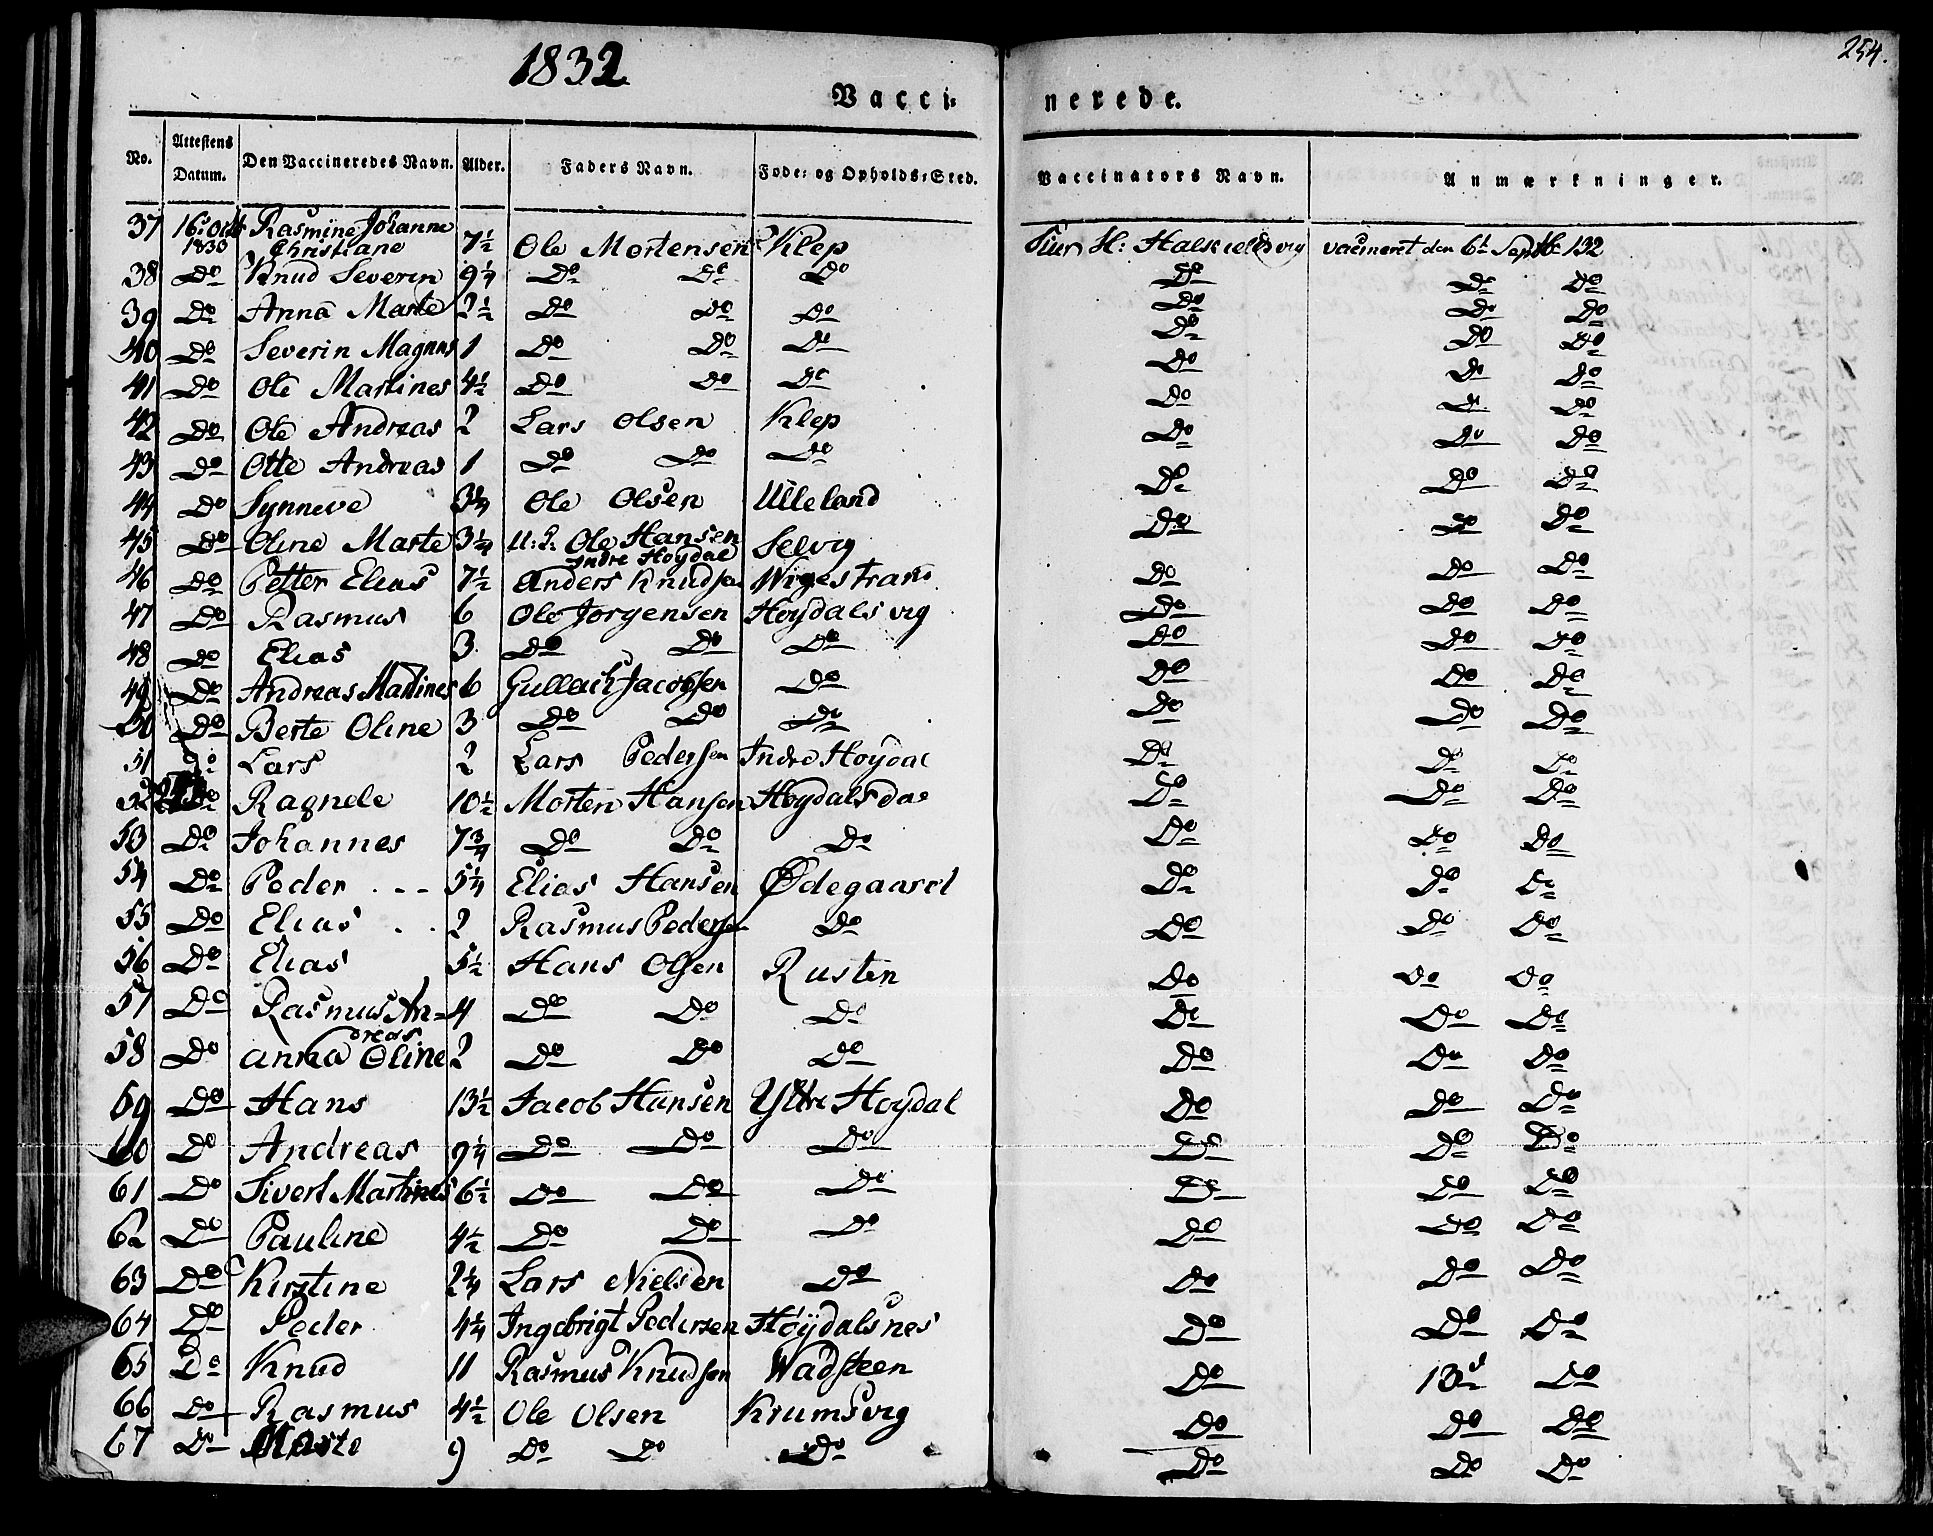 1832
254.
Vacci-
nerede.
No. Attestens Datum. Den Vaccineredes Navn. Alder. Faders Navn. Føde- og Opholds-Sted. Vaccinators Navn. Anmærkninger.
37 16: Octb 1830 Rasmine Johanne Christiane 7½ Ole Mortensen Klep H: vacineret den 6t Septb 132
38 Do Knud Severin 9¼ Do Do Do Do Do Do
39 Do Anna Marte 2½ Do Do Do Do Do Do
40 Do Severin Magnus 1 Do Do Do Do Do Do
41 Do Ole Martines 4½ Do Do Do Do Do Do
42 Do Ole Andreas 2 Lars Olsen Klep Do Do Do
43 Do Otte Andreas 1 Do Do Do Do Do Do
44 Do Synneve 3¼ Ole Olsen Ulleland Do Do Do
45 Do Oline Marte 3¼ U: Ole Hansen Indre Hoydal Selvig Do Do Do
46 Do Petter Elias 7½ Anders Knudsen Do Do Do
47 Do Rasmus 6 Ole Jorgensen Hoydalsvig Do Do Do
48 Do Elias 3 Do Do Do Do Do Do
49 Do Andreas Martines 6 Gullach Jacobsen Do Do Do Do
50 Do Berte Oline 3 Do Do Do Do Do Do
51 Do Lars 2 Lars Pedersen Indre Hoydal Do Do Do
52 Do Ragnele 10½ Morten Hansen Hoydalsdal Do Do Do
53 Do Johannes 7¾ Do Do Do Do Do Do
54 Do Peder . - - 5¼ Elias Hansen Ødegaard Do Do Do
55 Do Elias . . 2 Rasmus Pedersen Do Do Do Do
56 Do Elias 5½ Hans Olsen Rusten Do Do Do
57 Do Rasmus An=dreas 4 Do Do Do Do Do Do
58 Do Anna Oline 2 Do Do Do Do Do Do
59 Do Hans 13½ Jacob Hansen Yttre Hoydal Do Do Do
60 Do Andreas 9¼ Do Do Do Do Do Do
61 Do Sivert Martines 6½ Do Do Do Do Do Do
62 Do Pauline 4½ Do Do Do Do Do Do
63 Do Kirstine 2¼ Lars Nielsen Do Do Do Do
64 Do Peder 4¼ Ingebrigt Pedersen Høydalsnes Do Do Do
65 Do Knud 11 Rasmus Knudsen Wadsteen Do 13d Do
66 Do Rasmus 4½ Ole Olsen Krumsvig Do Do Do
67 Do Marte 9 Do Do Do Do Do Do